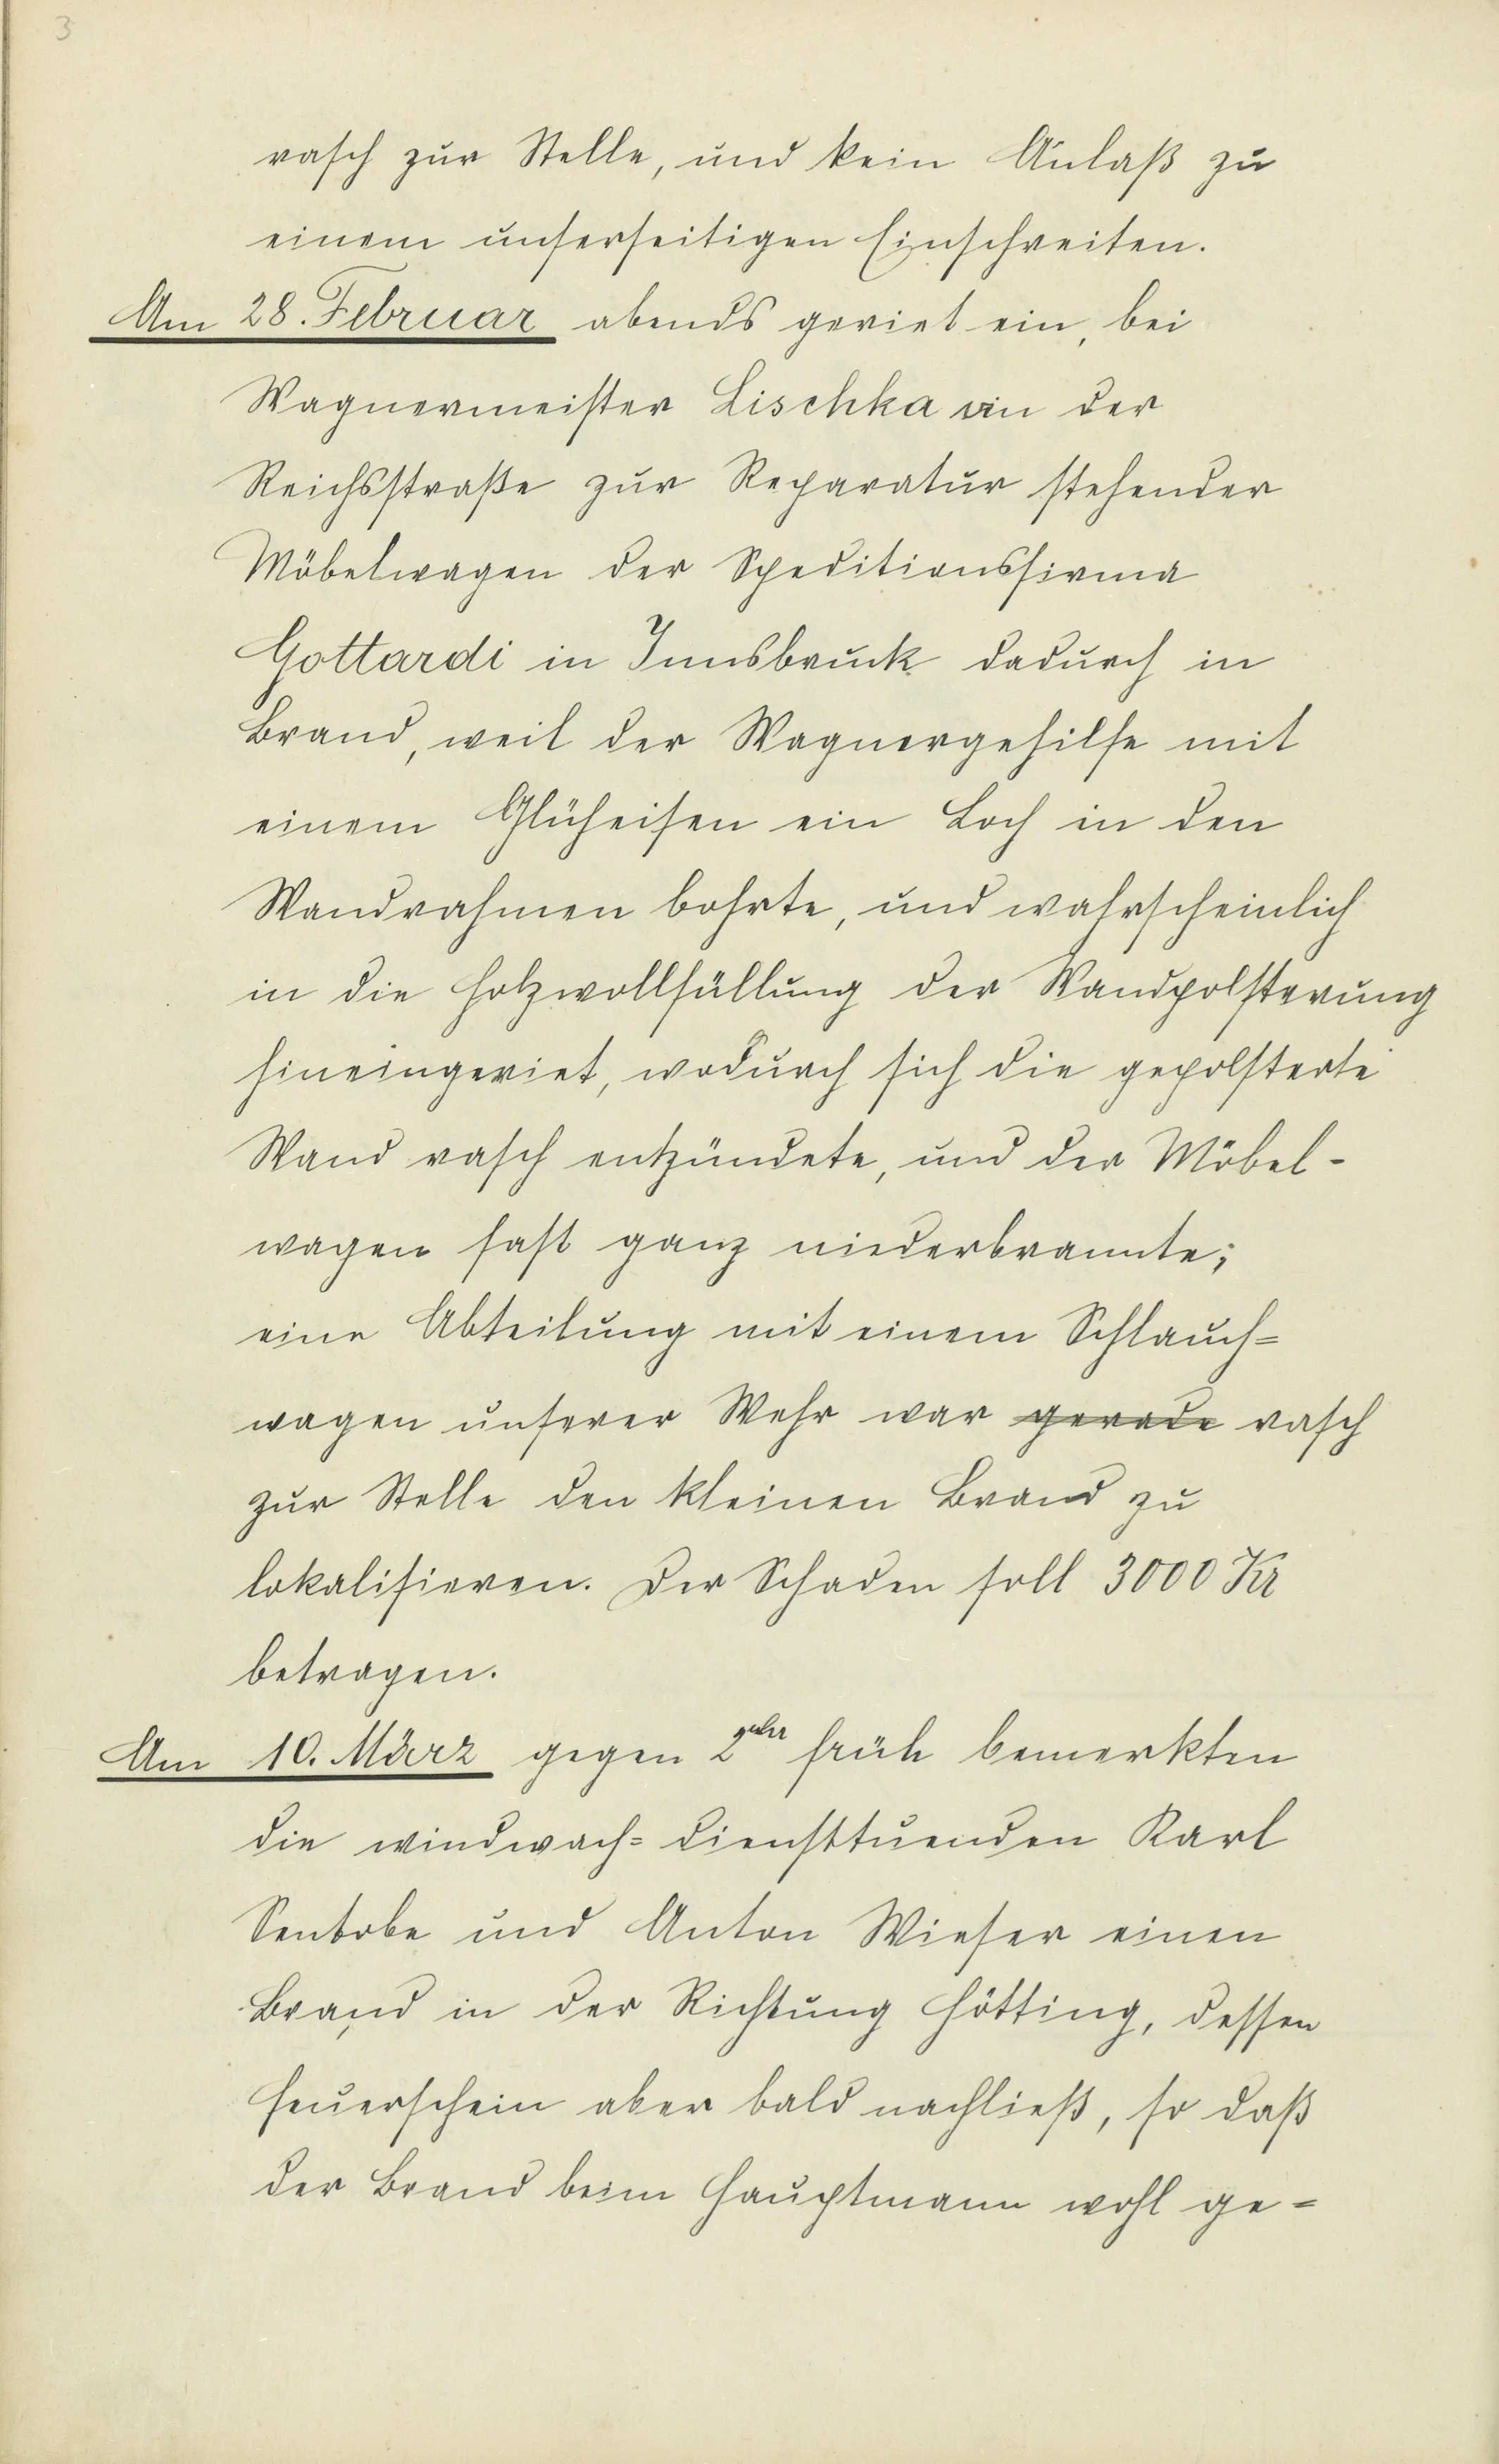 3
rasch zur Stelle, und kein Anlaß zu
einem unserseitigen Einschreiten.
Am 28. Februar abends geriet ein, bei
Wagnermeister Lischka in der
Reichsstraße zur Reparatur stehender
Möbelwagen der Speditionsfirma
Gottardi in Innsbruck dadurch in
Brand, weil der Wagnergehilfe mit
einem Glüheisen ein Loch in den
Wandrahmen bohrte, und wahrscheinlich
in die Holzwollfüllung der Wandpolsterung
hineingeriet, wodurch sich die gepolsterte
Wand rasch entzündete, und der Möbel-
wagen fast ganz niederbrannte;
eine Abteilung mit einem Schlauch=
wagen unserer Wehr war gerade rasch
zur Stelle den kleinen Brand zu
lokalisieren. Der Schaden soll 3000 Kr
betragen.
Am 10. März gegen 2 Uhr früh bemerkten
die windwach= diensttuenden Karl
und Anton Wieser einen
Brand in der Richtung Hötting, dessen
Feuerschein aber bald nachließ, so daß
der Brand beim Hauptmann wohl ge=